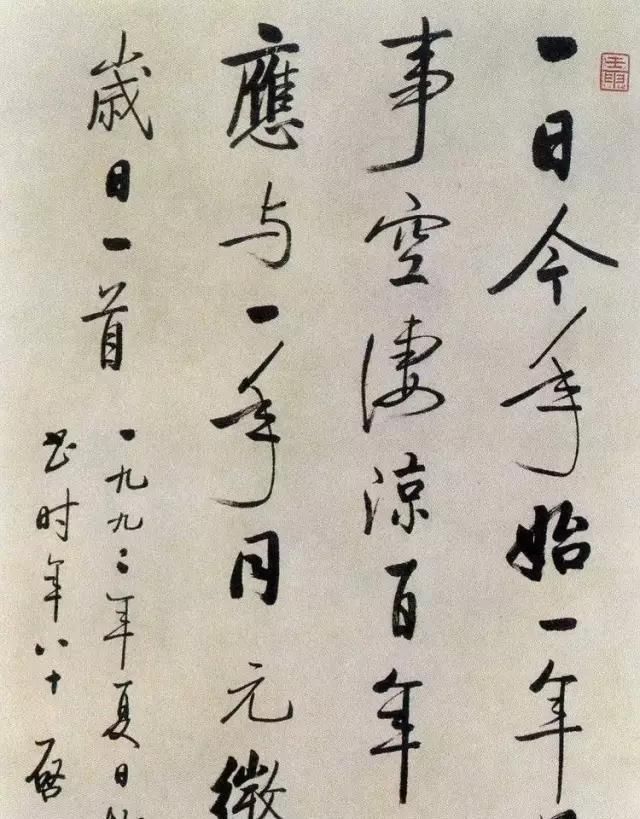 一日今年始一年
事空淒涼百年
應与一年同元微
歲日一首
一九九二年夏日
书时年八十啓